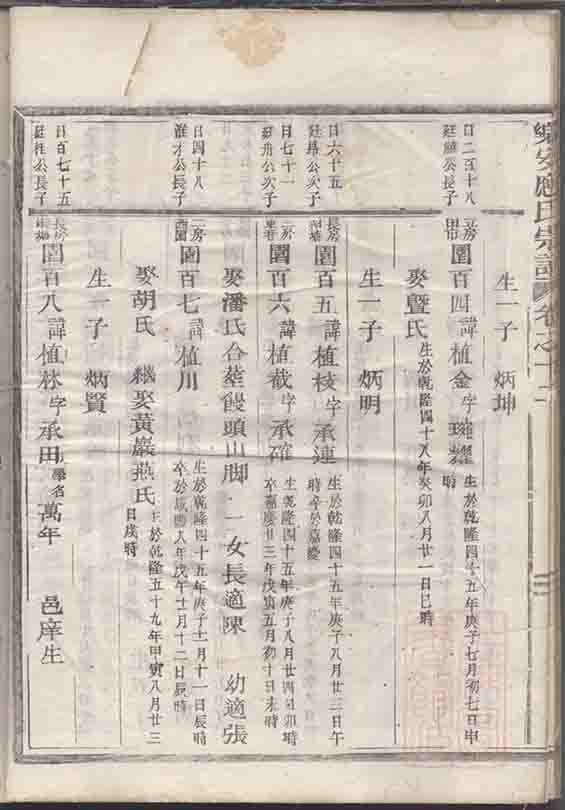 樂安應氏宗譜 卷之十二
生一子 炳坤
日二百十八
廷 公長子
二房
園百四諱植金字 耀
生於乾隆四十五年庚子七月初七日申
時
娶暨氏
生於乾隆四十八年癸卯八月廿一日巳時
生一子 炳明
日六十五
廷昂公次子
長房
園百五諱植棱字承連
生於乾隆四十五年庚子八月廿三日午
時卒於嘉慶
日七十一
廷舟公次子
二房
園百六諱植截字承確
生乾隆四十五年庚子八月廿四日卯時
卒嘉慶廿三年戊寅五月初十日未時
娶潘氏合塟饅頭山脚 一女長適陳 幼適張
日四十八
淮才公長子
二房
西園
園百七諱植川
生於乾隆四十五年庚子十一月十一日辰時
卒於咸豐八年戊午十二月十二日辰時
娶胡氏 繼娶黃巖燕氏
生於乾隆五十九年甲寅八月廿三
日戌時
生一子 炳賢
日百七十五
廷柱公長子
長房
園百八諱植林字承田
學名
萬年 邑庠生